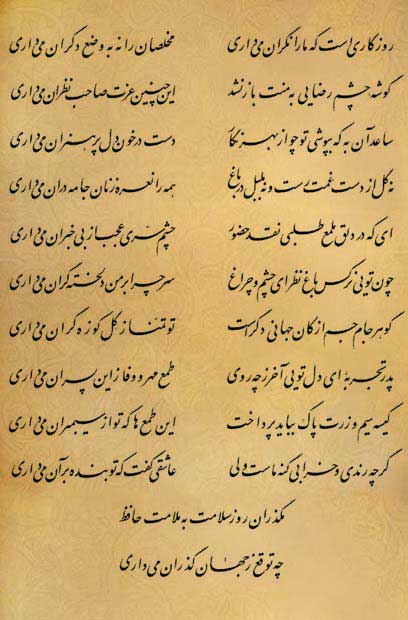 روزگاری است که ما را نگران می داری مخلصان را نه به وضع دگران می داری
گوشه چشم رضایی به منت باز نشد این چنین عزت صاحب نظران می داری
ساعد آن به که بپوشی تو چو از بهر نگار دست در خون دل پر هنران می داری
نه گل از دست غمت رست و نه بلبل در باغ همه را نعره زنان جامه دران می داری
ای که در دلق ملمع طلبی نقد حضور چشم سری عجب از بی خبران می داری
چون تویی نرگس باغ نظر ای چشم و چراغ سر چرا بر من دلخسته گران می داری
گوهر جام جم از کان جهانی دگر است تو تمنا ز گل کوزه گران می داری
پدر تجربهٔ ای دل تویی آخر ز چه روی طمع مهر و وفا زین پسران می داری
کیسه سیم و زرت پاک بباید پرداخت این طمع ها که تو از سیمبران می داری
گر چه رندی و خرابی گنه ماست ولی عاشقی گفت که تو بنده بر آن می داری
مگذران روز سلامت به ملامت حافظ
چه توقع ز جهان گذران می داری